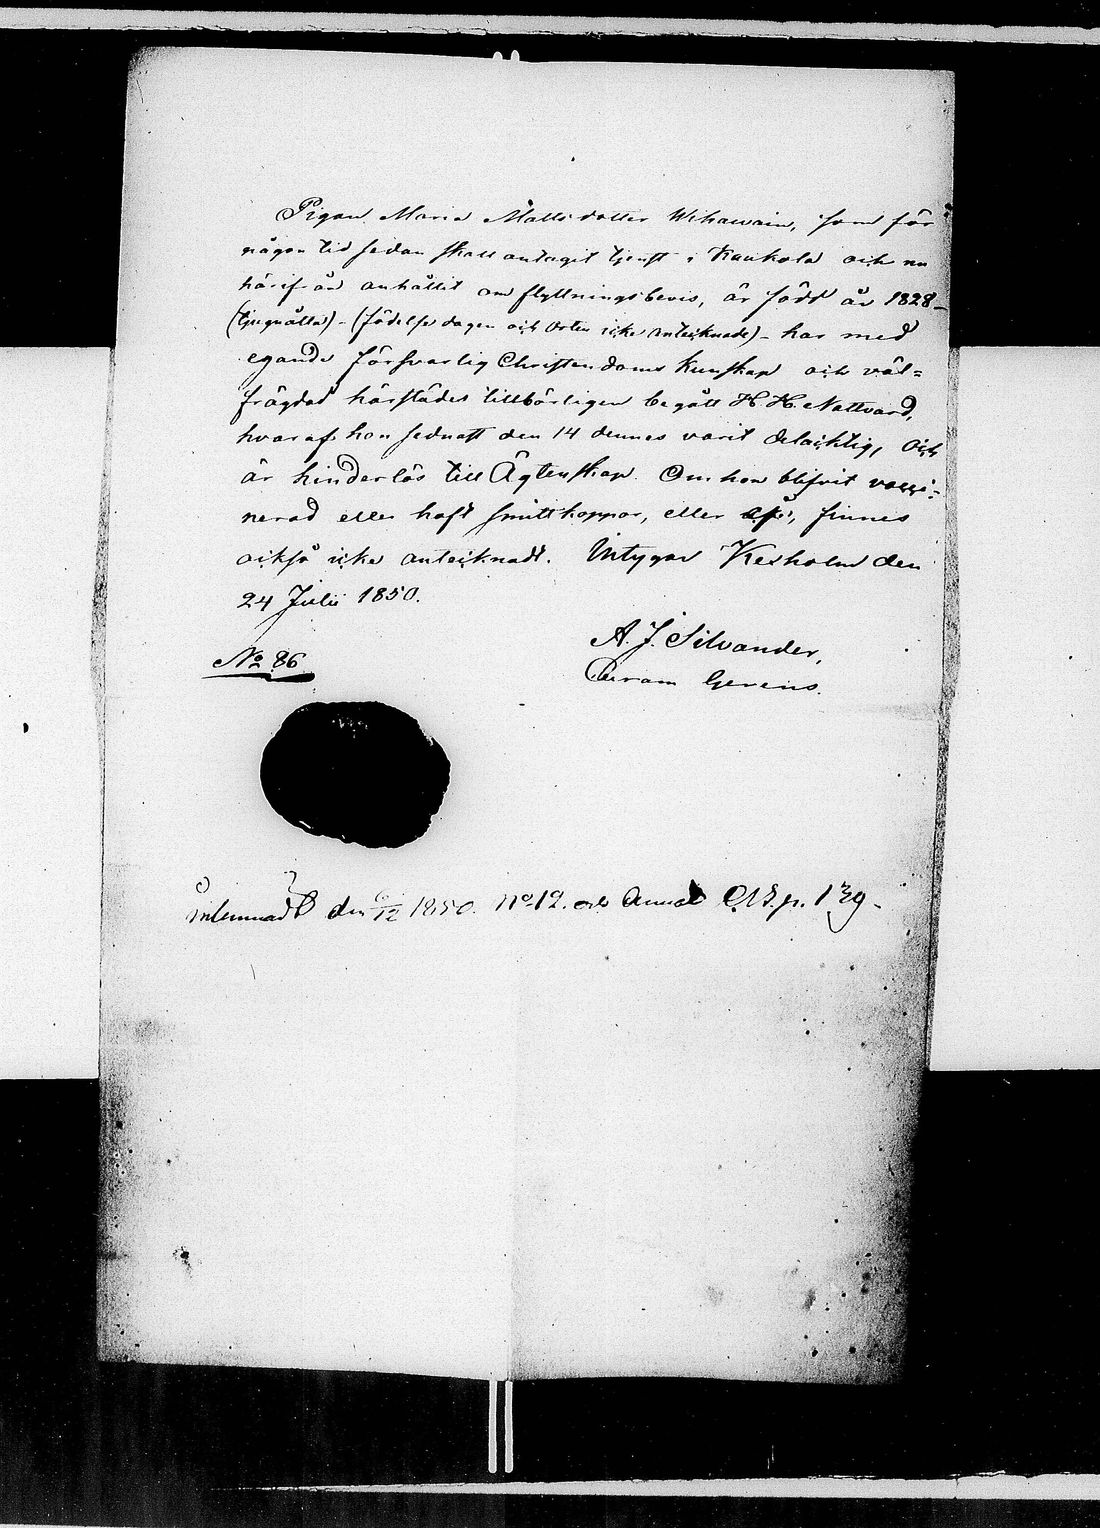 Pigan Maria Mattsdotter Wihawain, som för
någon tid sedan skall antagit tjenst i Kaukola och nu
härifrån anhållit om flyttningsbevis, är född år 1828-
(tjuguåtta) - (födelse dagen och orten icke antecknade) - har med
egande försvarlig Christendoms kunskap och väl=
frägdad härstädes tillbörligen begått H. H. Nattvard,
hvaraf hon sednast den 14 dennes varit delachtig, och
är hinderlös till Ägtenskap. Om hon blifvit vacci=
nerad eller haft smittkoppor, eller ej, finnes
också icke antecknadt. Intygar Kexholm den
24 Julii 1850.
A. J. Silvander,
No 86
Curam Gerens.
Inlemnadt den 6/12 1850. No 12. och p. 139.